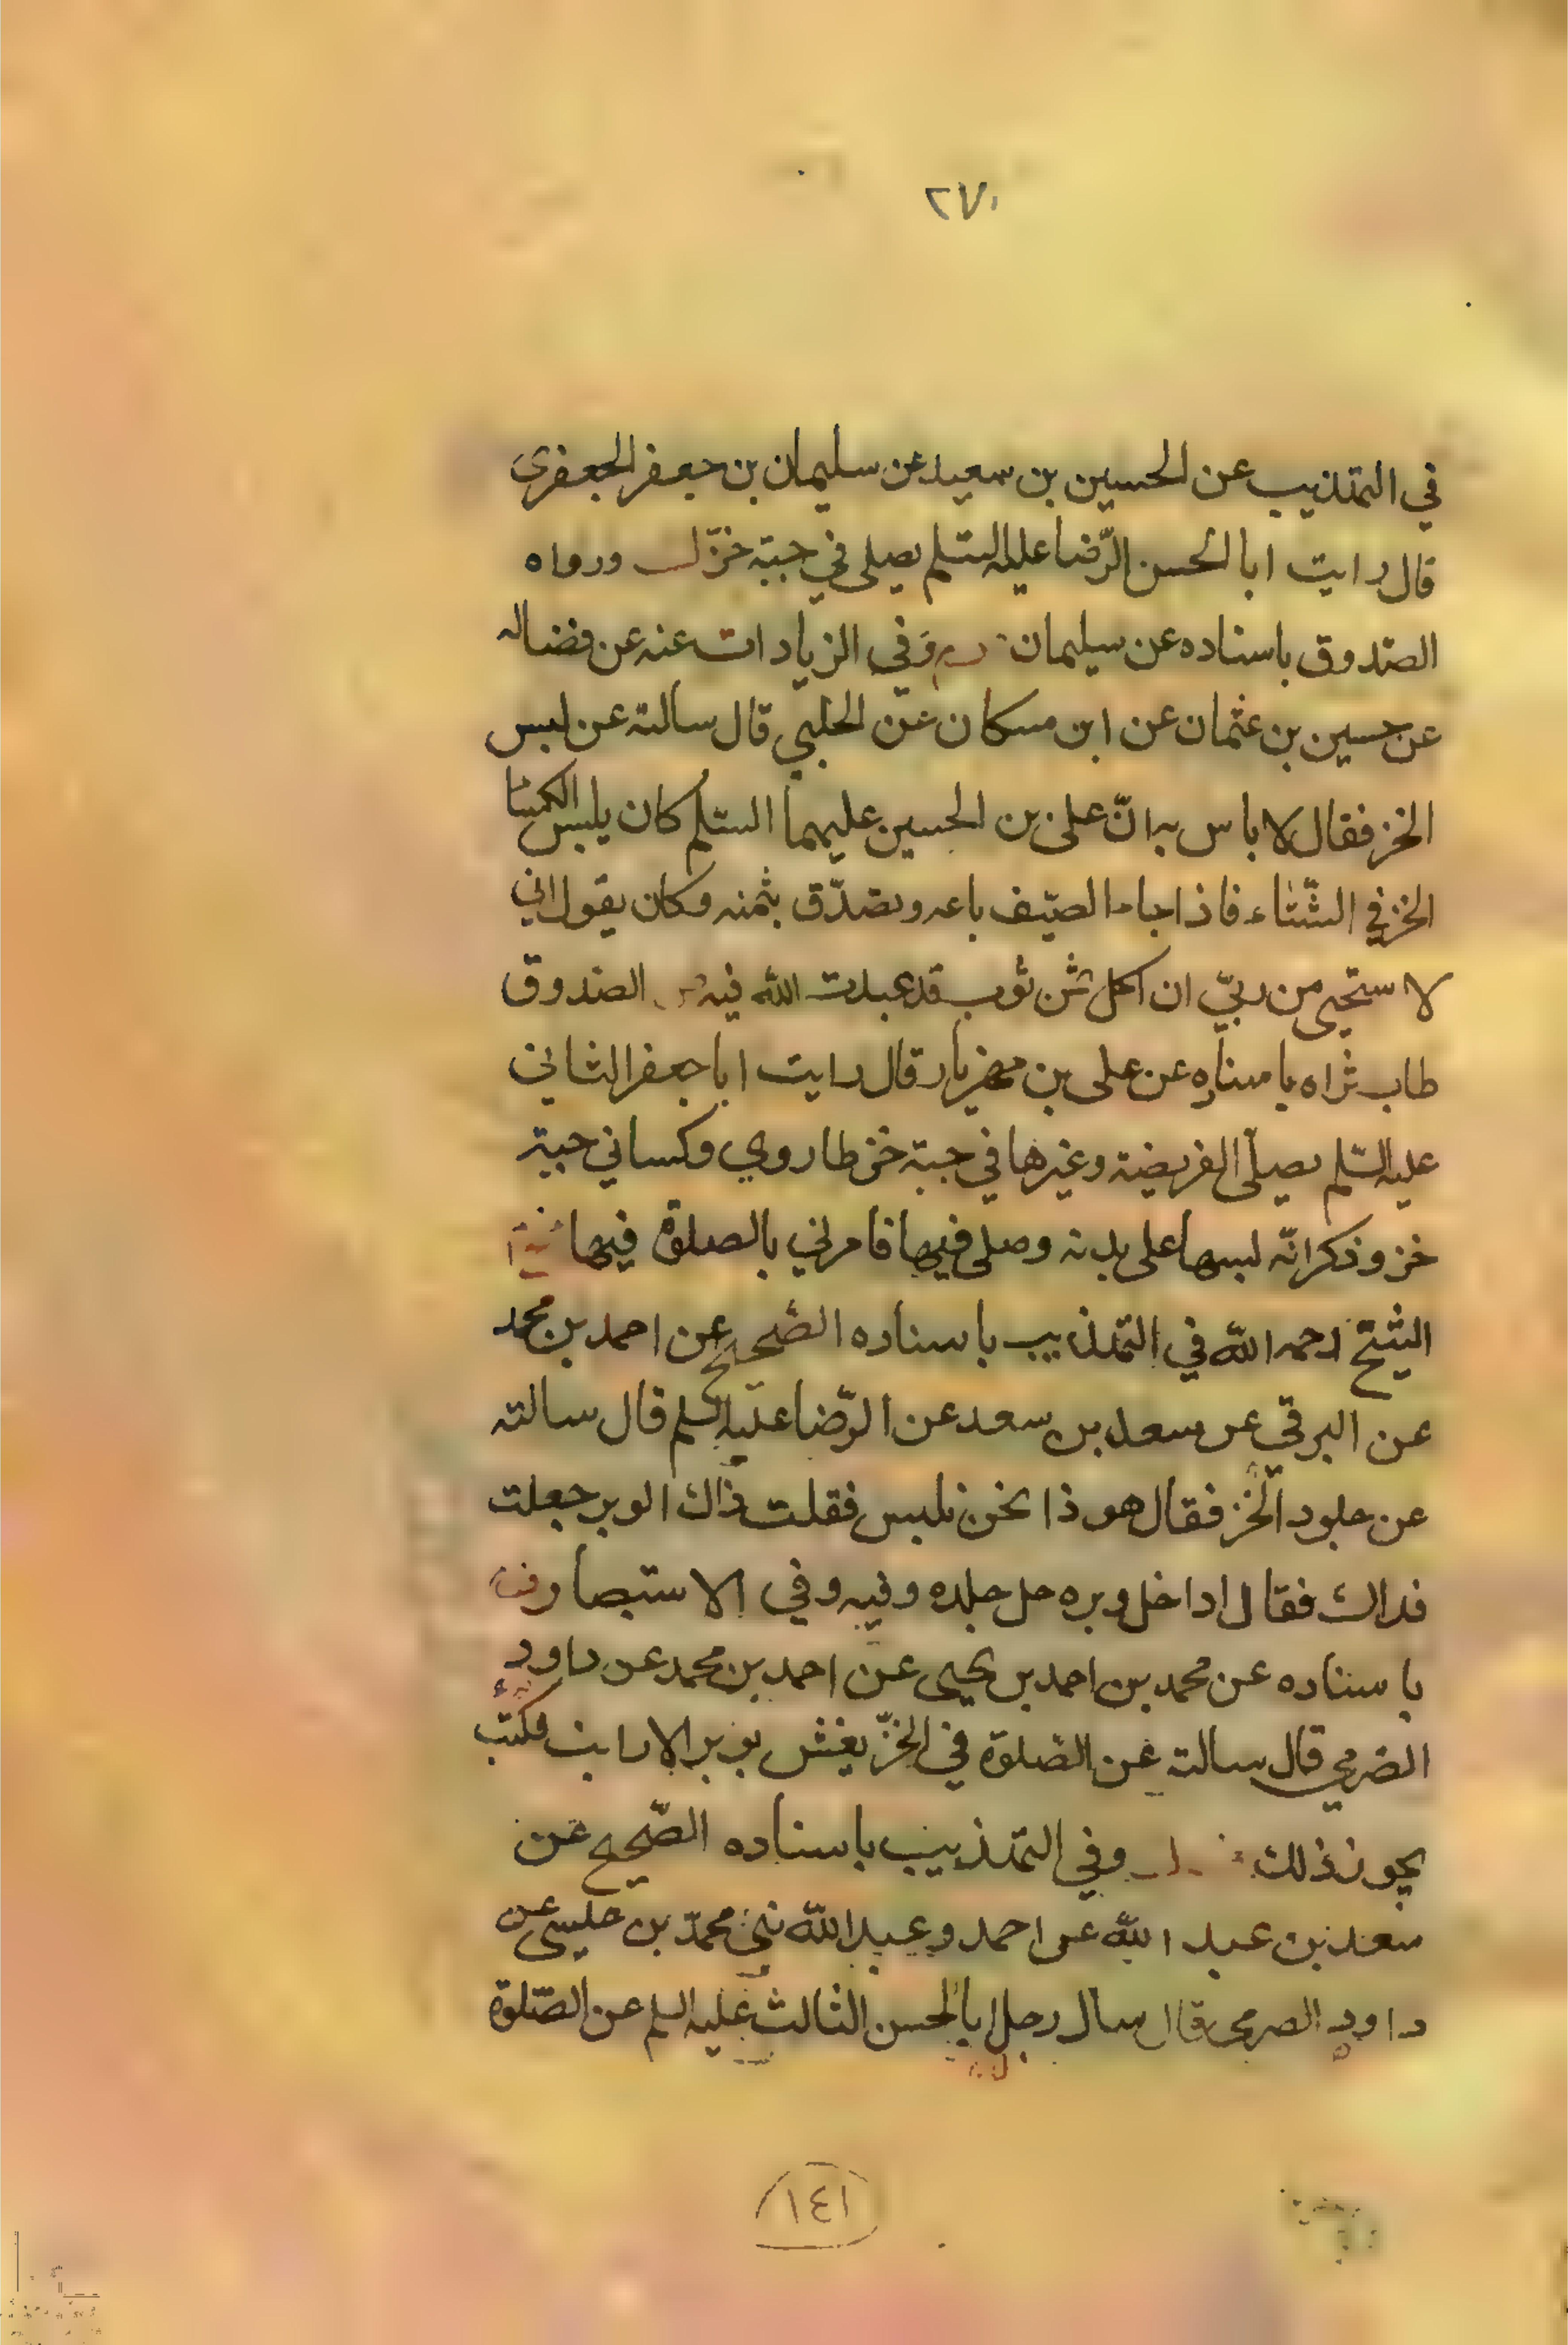 ٢٧٠
في التهذيب عن الحسين بن سعيد عن سليمان بن جعفر الجعفري
قال رايت ابا الحسن الرّضا عليه السّلم يصلي في جبّة خزّ ورواه
الصّدوق باسناده عن سليمان وَفي الزيادات عنه عن فضاله
عن حسين بن عثمان عن ابن مسكان عن الحلبي قال سالته عن لبس
الخز فقال لا باس به انّ على بن الحسين عليهما السّلم كان يلبس الكسا
الخز في الشّتاء فاذا جاء الصيّف باعه وتصدّق بثمنه وكان يقول اني
لا ستحيي من ربيّ ان اكل ثمن ثوب قد عبدت الله فيه الصّدوق
طاب ثراه باسناده عن على بن مهزيار قال رايت ابا جعفر الثاني
عليه السّلم يصلّى الفريضة وغيرها في جبّة خز طاروي وكساني جبة
خز وذكر انّه لبسها على بدنه وصلى فيها فامرني بالصلوة فيها
الشّيخ رحمه الله في التهذيب باسناده الصّحيح عن احمد بن محمد
عن البرقي عن سعد بن سعد عن الرّضا عليه السلم قال سالته
عن جلود الخّز فقال هو ذا نحن نلبس فقلت ذاك الوبر جعلت
فداك فقال اذا حل وبره حل جلده وفيه وفي الاستبصار
باسناده عن محمد بن احمد بن يحيى عن احمد بن محمد عن داود
الصّرمي قال سالته عن الصّلوة في الخزّ يغش بوبر الارانب فكتب
يجوز ذلك وفي التهذيب باسناده الصّحيح عن
سعد بن عبد الله عن احمد وعبد الله بني محمّد بن عيسى عن
داود الصرمي قال سال رجل ابا الحسن الثالث عليه السلم عن الصّلوة
١٤١